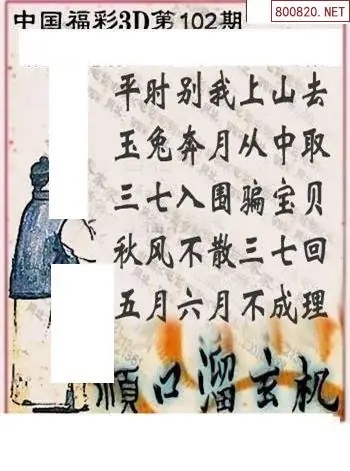 800820.NET
中国福彩3D第102期
平时别我上山去
玉兔奔月从中取
三七入围骗宝贝
秋风不散三七回
五月六月不成理
顺口溜玄机